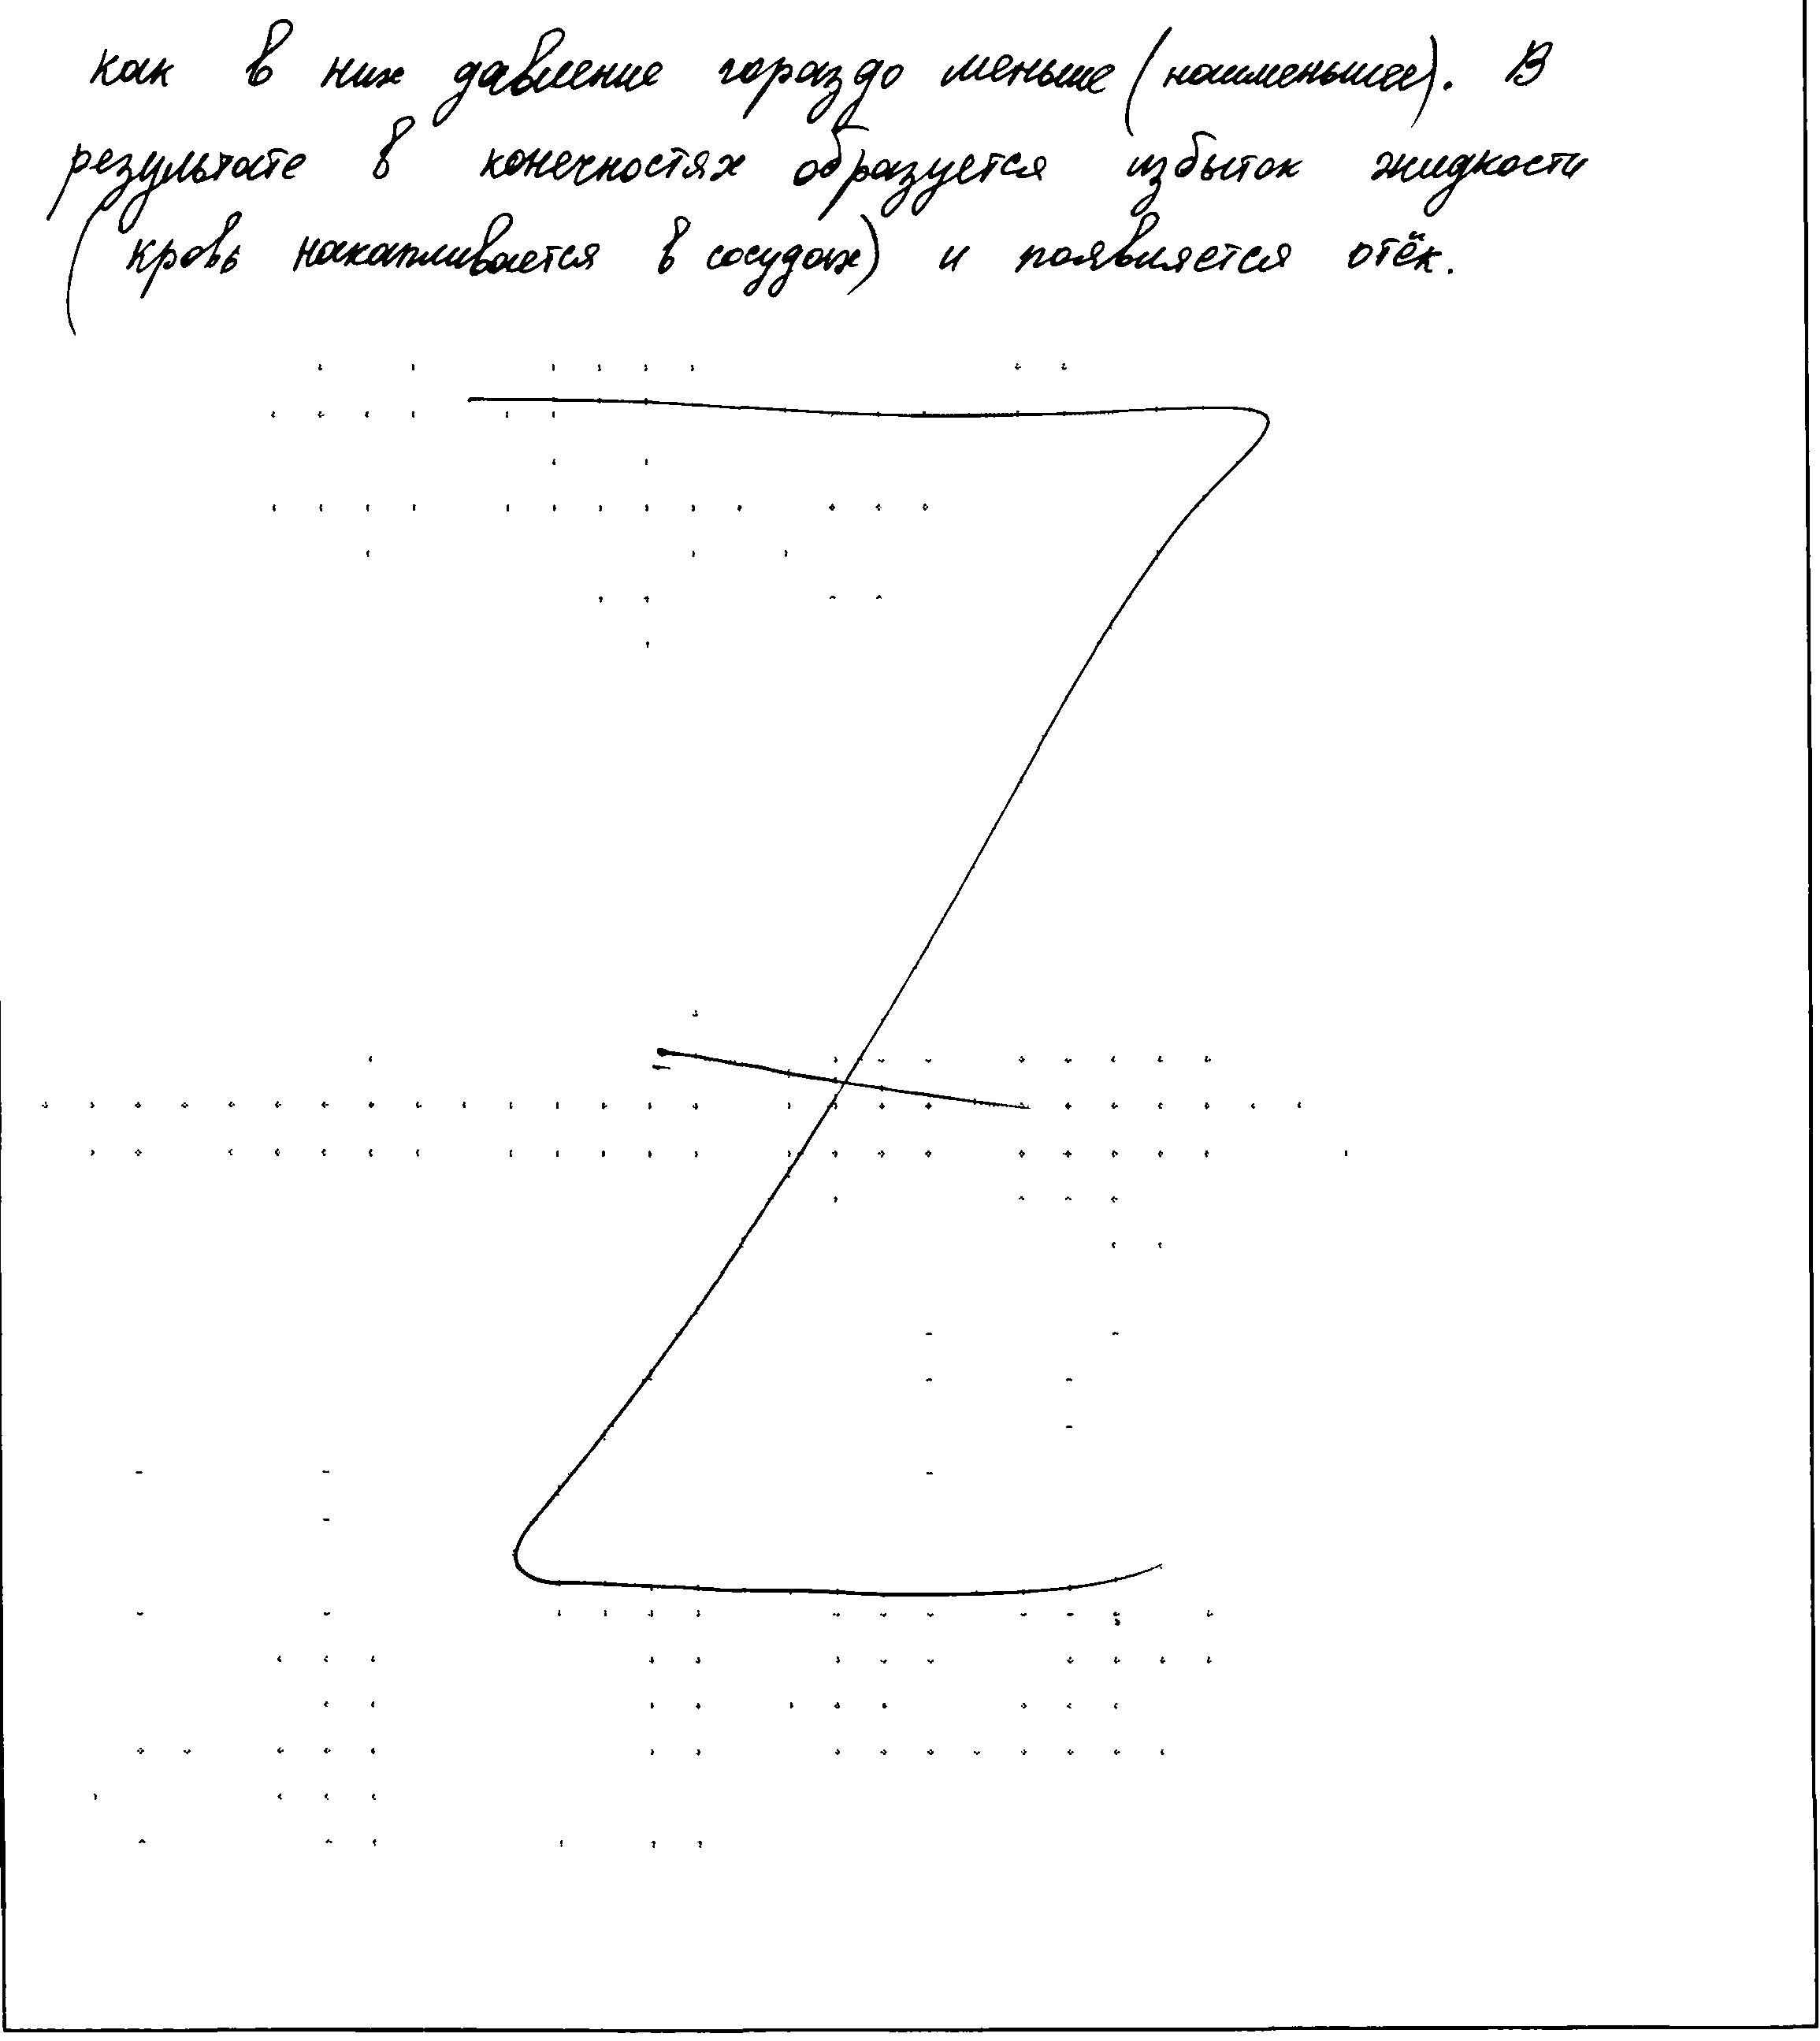 как в них давление гораздо меньше (наименьшее). В
результате в конечностях образуется избыток жидкости
(кровь накапливается в сосудах) и появляется отёк.